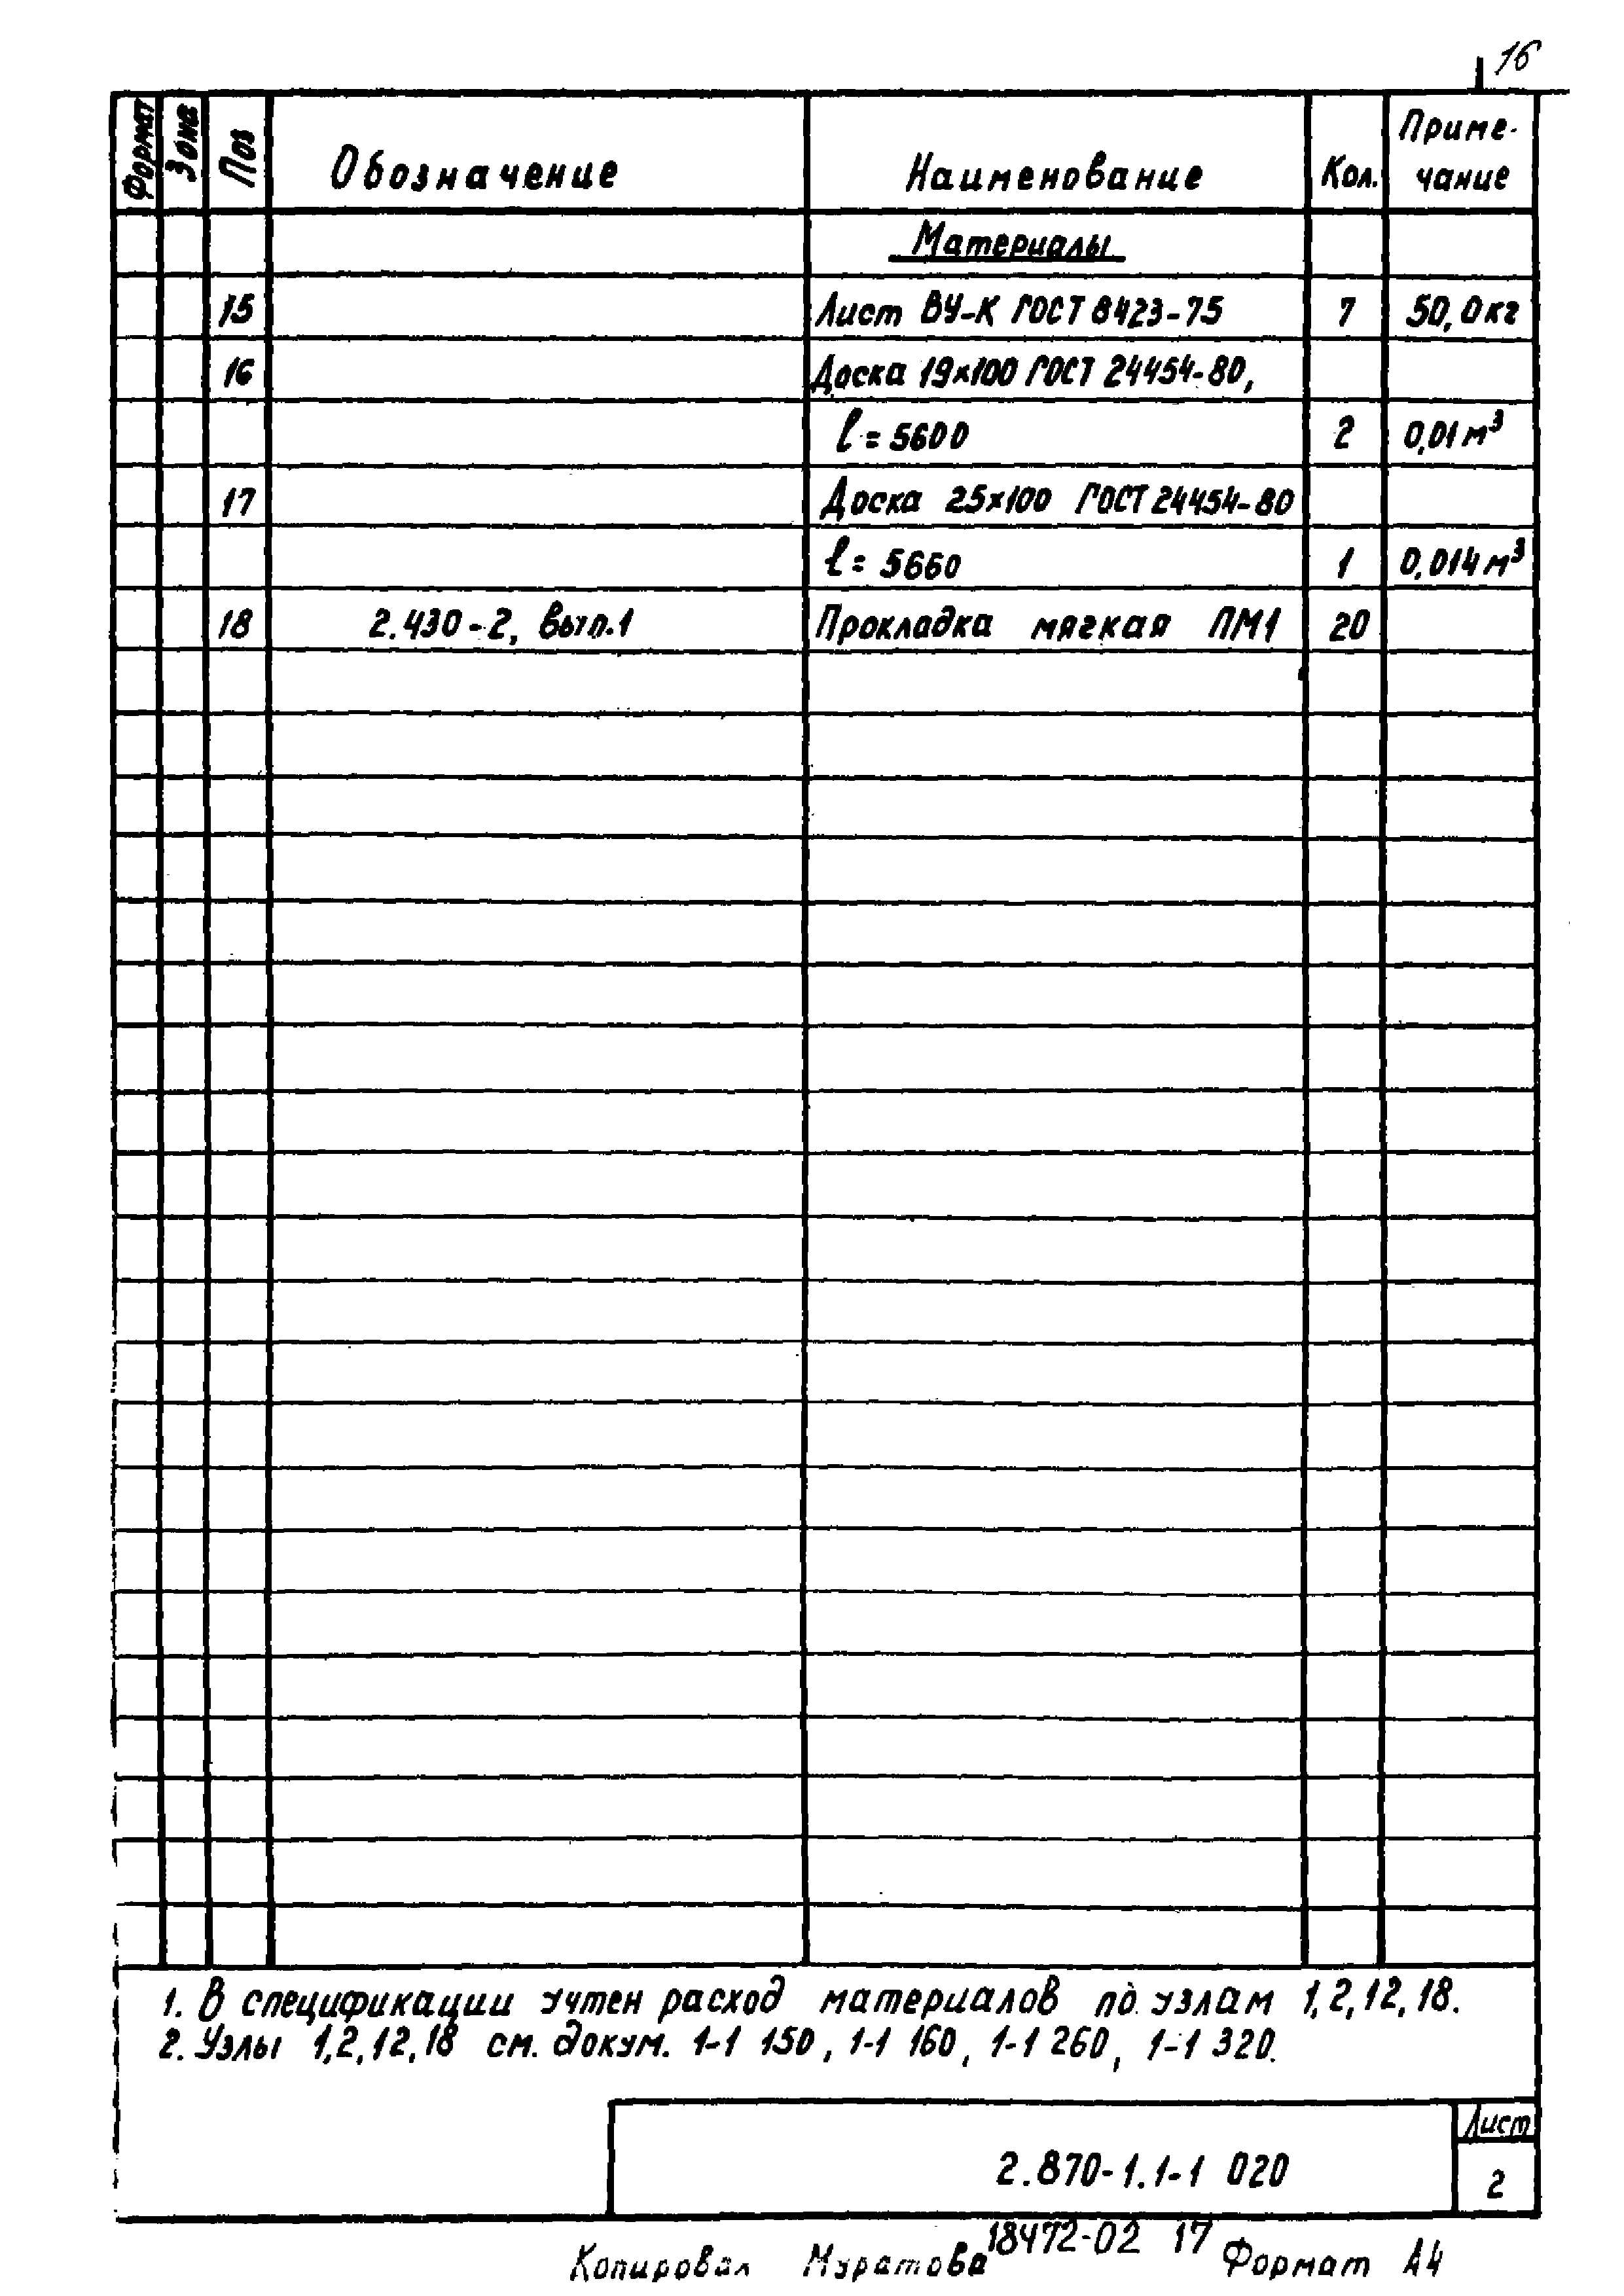 16
Формат Зона Поз Обозначение Наименование Кол. Приме-
чание
Материалы
15 Лист ВУ-К ГОСТ 8423-75 7 50,0кг
16 Доска 19×100 ГОСТ 24454-80,
l = 5600 2 0,01 м³
17 Доска 25×100 ГОСТ 24454-80
l = 5660 1 0,014 м³
18 2.430-2, вып.1 Прокладка мягкая ПМ1 20
1. В спецификации учтен расход материалов по узлам 1,2,12,18.
2. Узлы 1,2,12,18 см. докум. 1-1 150, 1-1 160, 1-1 260, 1-1 320.
Лист
2.870-1.1-1 020 2
18472-02 17
Копировал Муратова Формат А4